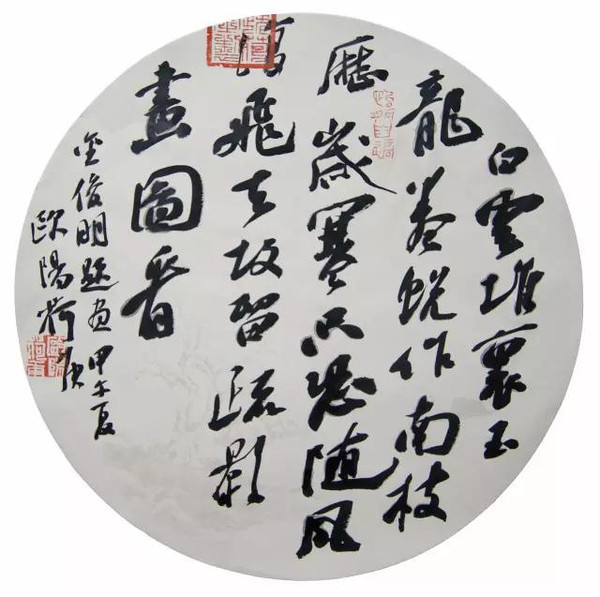 白雲堆裏玉
龍卷蜕作南枝
歷歲寒只恐随風
飛去故留疏影
畫圖看
金俊明題畫甲午夏
歐陽荷庚